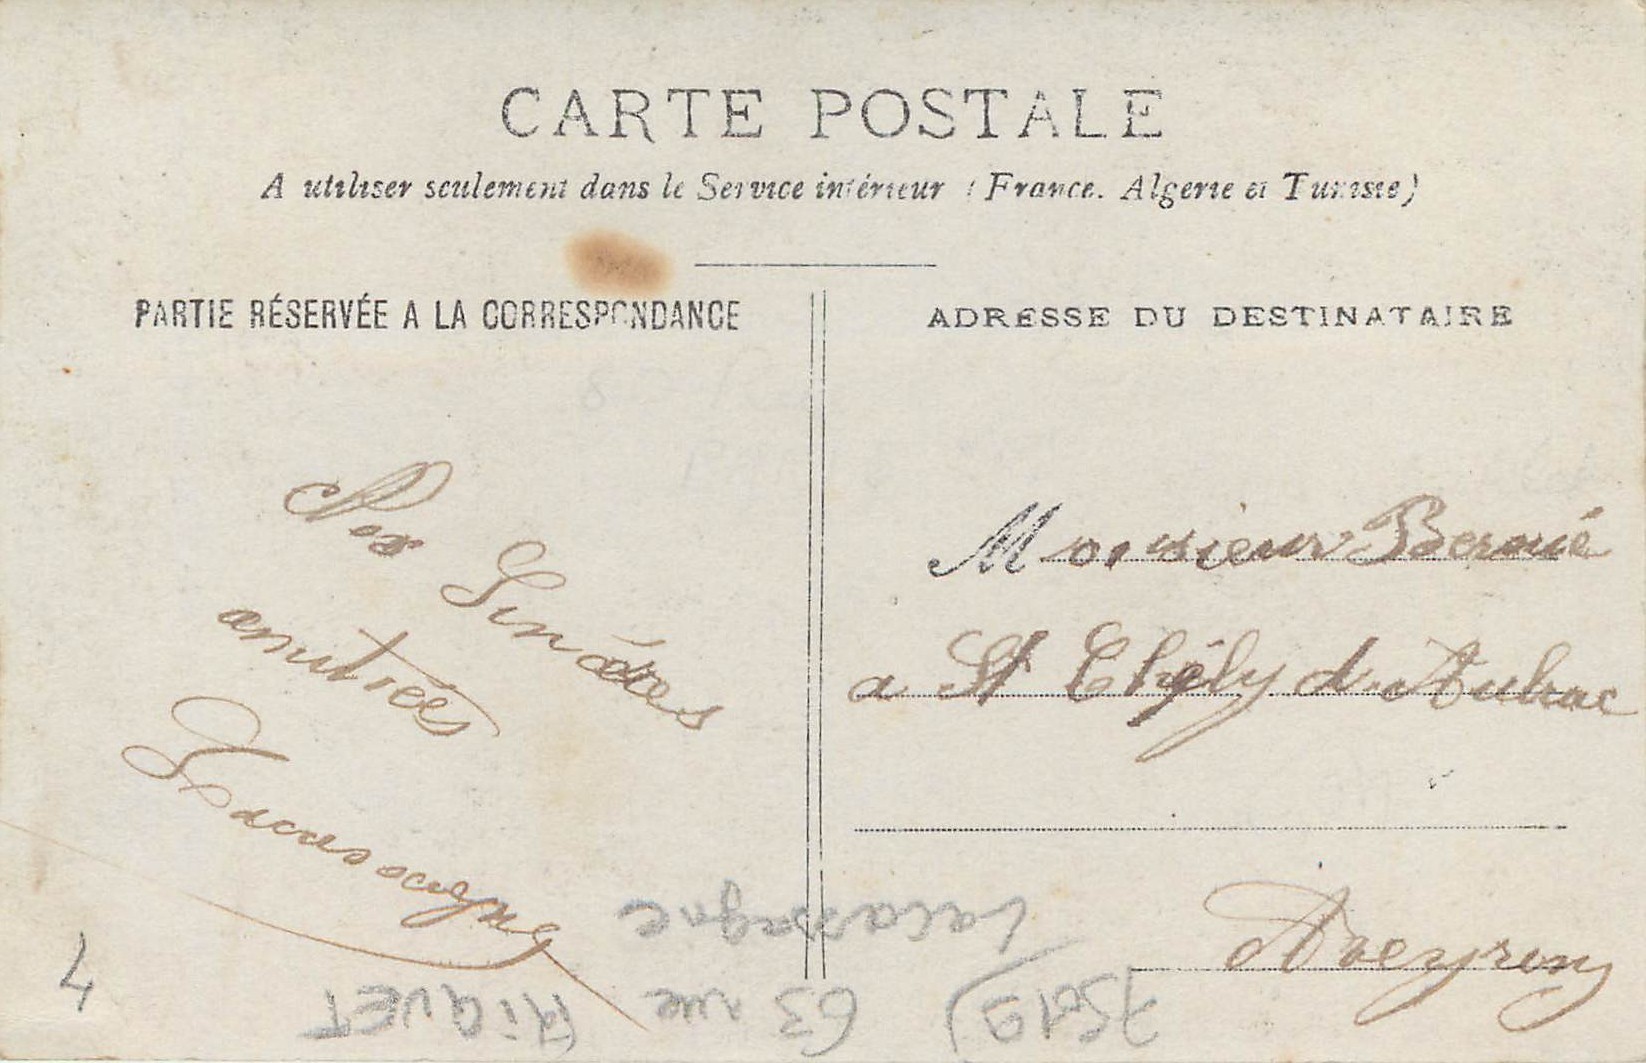 CARTE POSTALE
A utiliser seulement dans le Service intérieur (France. Algerie et Tunisie)
PARTIE RÉSERVÉE A LA CORRESPONDANCE
ADRESSE DU DESTINATAIRE
Nos Sincères
amitiées
Lacassagne
Monsieur Bernié
a St Chély d'Aubrac
Aveyron
4
75019) 63 rue RiQUET
Lacassagne